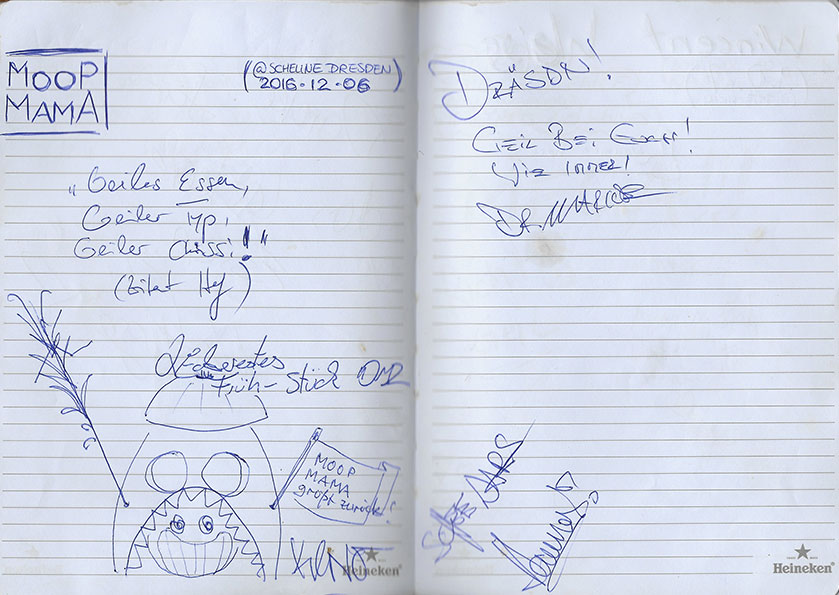 MOOP
MAMA
(@SCHEUNE DRESDEN)
2016.12.06
„Geiles Essen,
Geiler Typ,
Geiler Chrissi!“
(Zitat
Leckerstes
Früh-Stück
MOOP
MAMA
grüßt zurück!
Heineken®
DRÄSDN!
GEIL BEI EUCH!
WIE IMMER!
DR. MARCUS
Heineken®